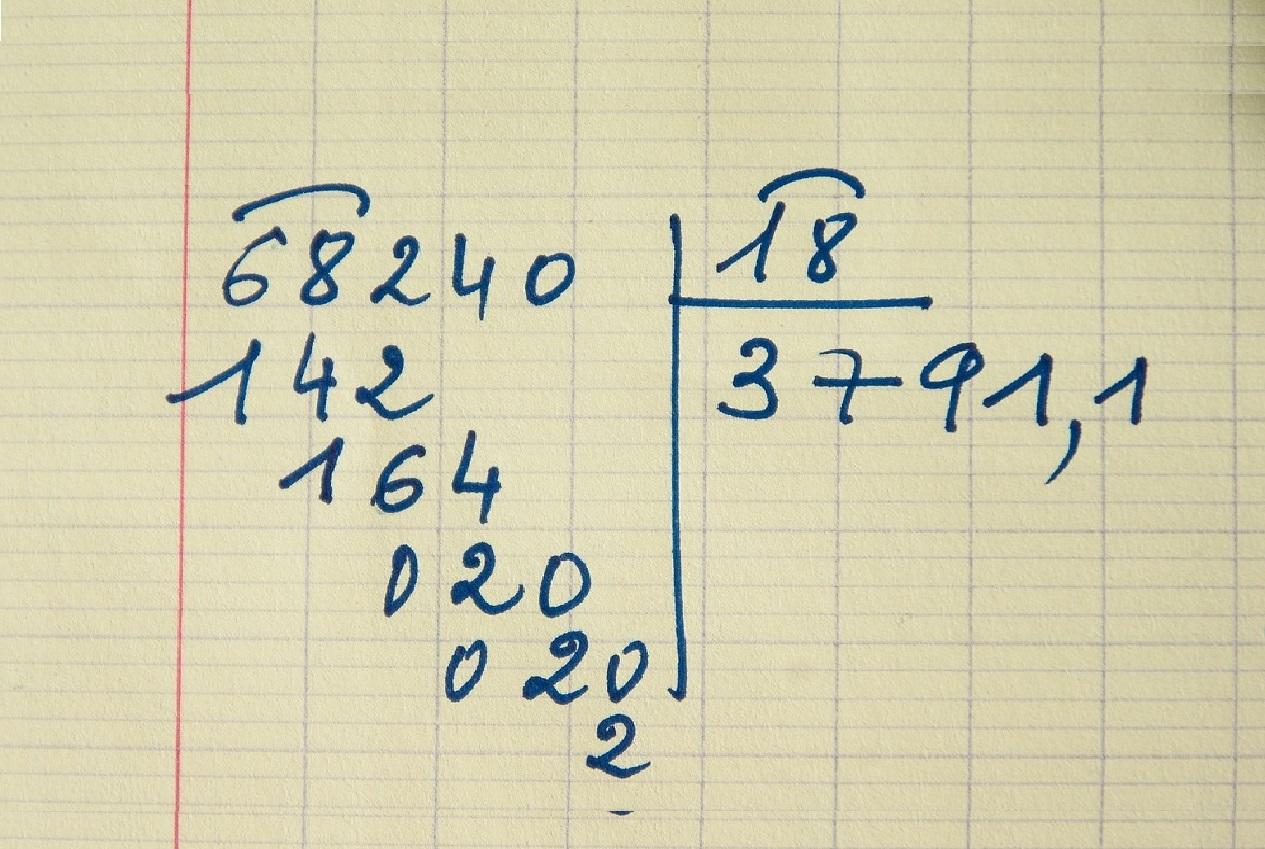 68240 18
142 3791,1
164
020
020
2